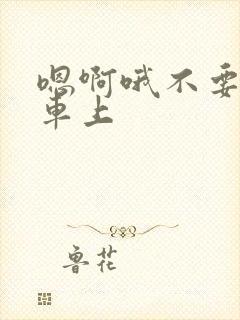 嗯啊哦不要
車上
鲁花